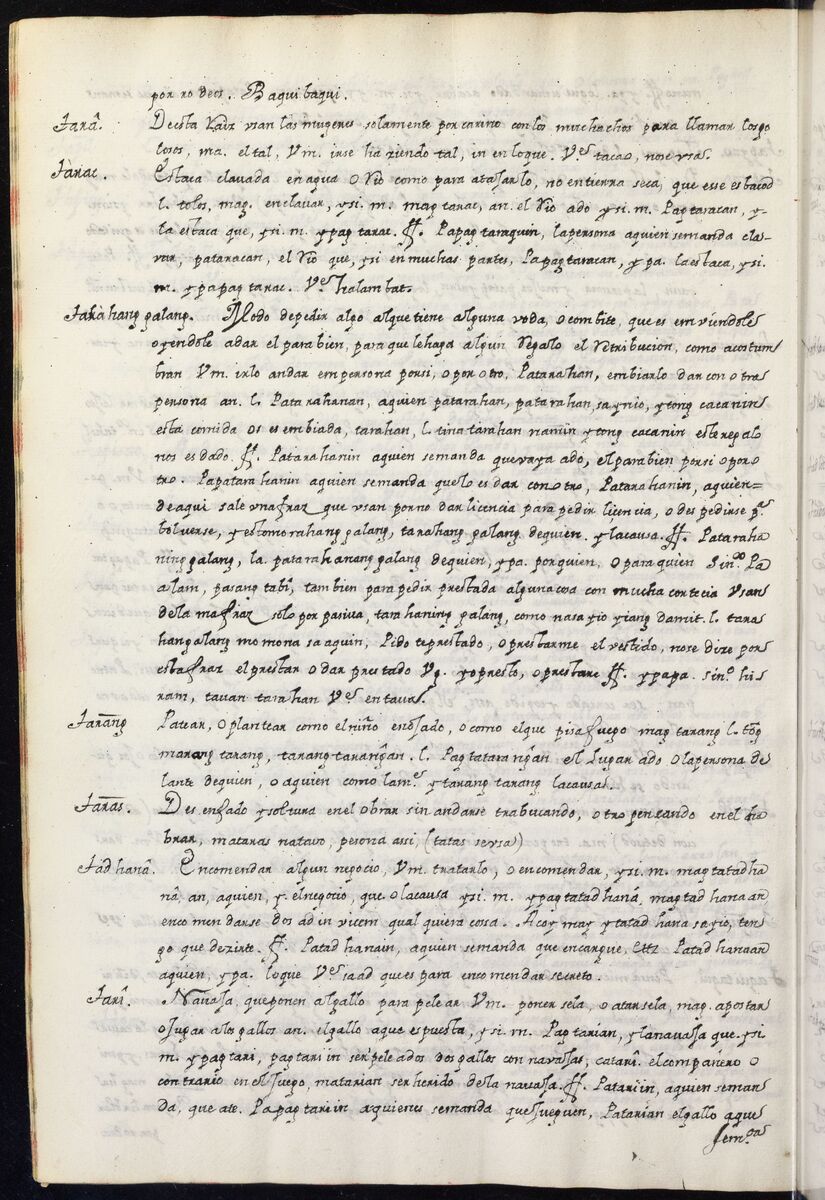 por no decs. Baqui baqui.
Tarâ. Decsta Raiz vsan las mugeres solamente por carino con los muchachos para llamar los go
losos, ma. el tal, Vm. irse haziendo tal, in en lo que. Ve. tacao, nose vsa.
Tàrac. Estaca clauada en agua o Rio como para ataJarlo, no en tierra seca, que esse es bacod
l. tolos, mag. en clauar, y si. m. mag tarac, an. el Rio ado y si. m. Pag taracan, y-
la estaca que, y si. m. ypag tarac. ff. Papag taraquin, la persona aquien se manda cla-
uar, pataracan, el Rio que, y si en muchas partes, Papag taracan, y pa. la estaca, y si.
m. y papag tarac. Ve. halambat.
Tarà hang galang. Modo de pedir algo al que tiene alguna voda, o combite, que es em viendole
o yendole a dar el para bien, para que le haga algun Regalo el Retribucion, como acostum
bran Vm. irlo a ndar em persona por si, o por otro, Patarahan, embiarlo dar con otra
persona an. l. Patarahanan, aquien patarahan, patarahan sa ynio, ytong cacanin
esta comida os es embiada, tarahan, l. tinatarahan namin ytong cacanin este regalo
nos es dado. ff. Patarahanin aquien se manda que vaya ado, el para bien por si o por o
tro. Papatarahanin aquien se manda que lo es dar con otro, Patarahanin, aquien=
de aqui sale vna fraz que vsan por no dar licencia para pedir liçencia, o des pedirse pa.
bolverse, y es tomorahang galang, tarahang galang de quien. y la causa. ff. Pataraha
ning galang, la. patarahanang galang de quien, y pa. por quien, o para quien Sinoo. Pa
alam, pasang tabî, tambien para pedir prestada alguna cosa con mucha cortecia vsan
de la ma fraz solo por pasiua, tarahaning galang, como nasa yio yiang damit. l. tara
hangalang mo mona sa aquin, Pido te prestado, o prestarme el vestido, nose dize por
esta fraz el prestar o dar prestado Vg. yo presto, o prestare ff. y papa. sino. hi
ram, tauan tarahan Ve. en taua.
Tarāng Patear, o plantear como el niño enoJado, o como el que pisa fuego mag tarang l. tōg
marang tarang, tarang tarangan. l. Pag tatarangan el lugar ado o la persona de
lante de quien, o aquien como lame. y tarang tarang la causa.
Tarās. Des enfado y soltura en el obrar sin andarse trabucando, o tro peçando en el ha
brar, mataras natauo, pesona assi, (tatas se vsa)
Tàd hanâ. Encomendar algun negocio, Vm. tratarlo, o encomendar, y si. m. mag tatad ha
nâ, an, aquien, y. el negocio, que o la causa y si. m. y pag tatad hanâ, mag tad hanaan
enco mendarse dos ad in vicem qual quiera cossa. Acoy may ytatad hana sa yio, ten
go que dezirte. ff. Patad hanain, aquien se manda que encargue, ettz Patad hanaan
aquien, y pa. lo que Ve. saad que es para encomendar secreto.
Tarî. NauaJa, que ponen al gallo para pelear Vm. ponersela, o atarsela, mag. apostar
o Jugar a los gallos an. el gallo aque es puesta, y si. m. Pag tarian, y la nauaJa que. y si
m. y pag tari, pag tariin ser peleados dos gallos con nauaJas, catarî. el compañero o
contrario en el Juego, matarian ser herido de la nauaJa. ff. Patariin, aquien se man
da, que ate. Papag tariin aquienes se manda que Jueguen, Patarian el gallo aque
se mda